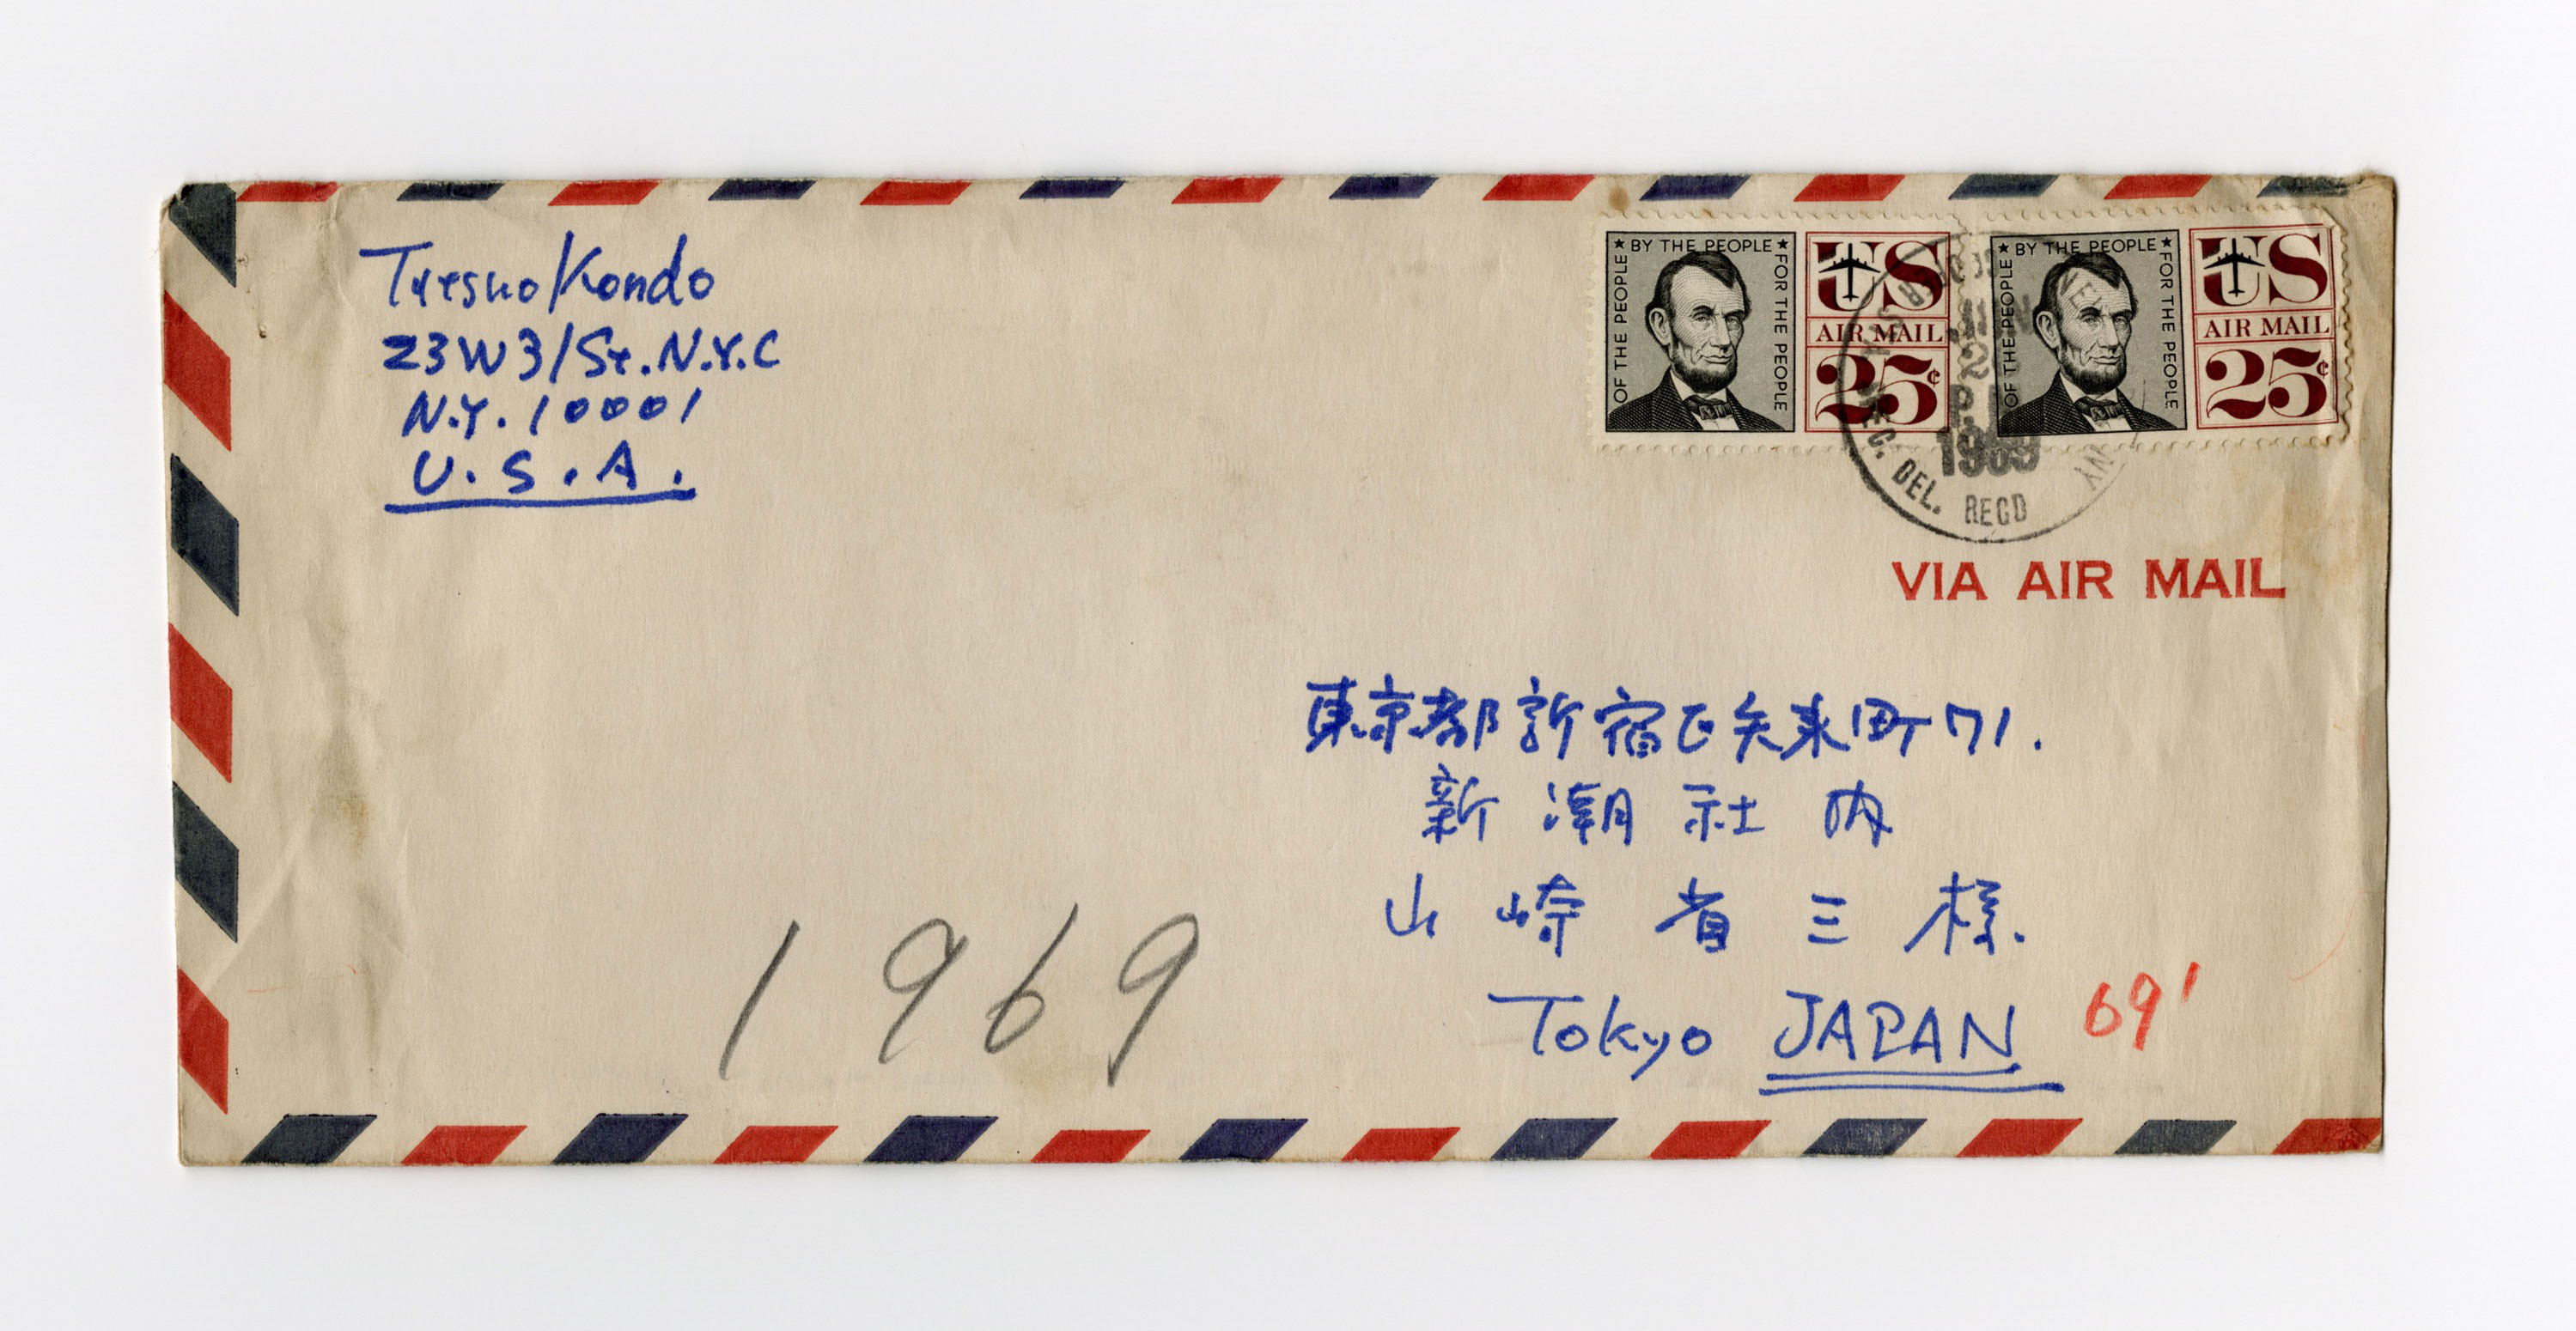 Tyesuo/Kondo
23W 31 St. N.Y.C
N.Y. 10001
U.S.A.
OF THE PEOPLE ★ BY THE PEOPLE ★ FOR THE PEOPLE
US
AIR MAIL
25¢
OF THE PEOPLE ★ BY THE PEOPLE ★ FOR THE PEOPLE
US
AIR MAIL
25¢
JUN
1969
DEL. RECD
NY
VIA AIR MAIL
東京都新宿区矢来町71.
新潮社内
山崎省三様.
Tokyo JAPAN
69'
1969